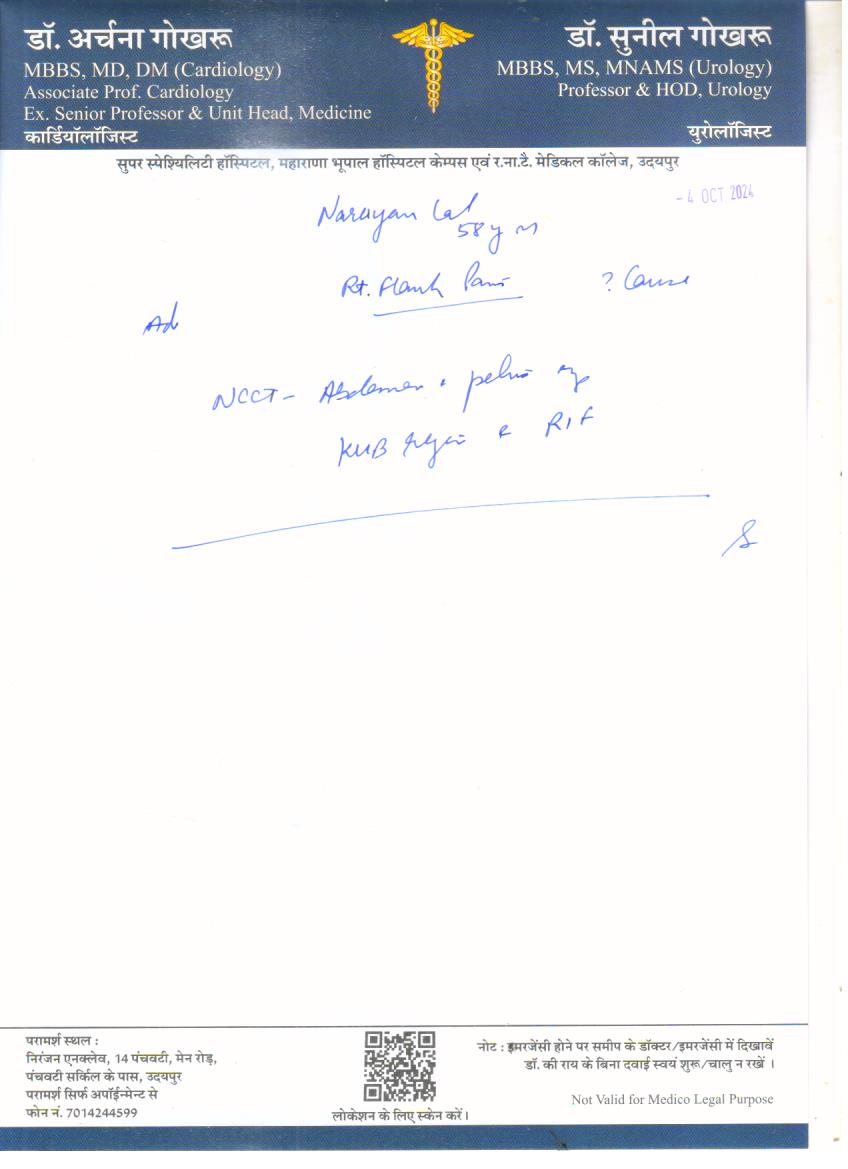 डॉ. अर्चना गोखरू
MBBS, MD, DM (Cardiology)
Associate Prof. Cardiology
Ex. Senior Professor & Unit Head, Medicine
कार्डियॉलॉजिस्ट
डॉ. सुनील गोखरू
MBBS, MS, MNAMS (Urology)
Professor & HOD, Urology
युरोलॉजिस्ट
सुपर स्पेश्यिलिटी हॉस्पिटल, महाराणा भूपाल हॉस्पिटल केम्पस एवं र.ना.टै. मेडिकल कॉलेज, उदयपुर
- 4 OCT 2024
Narayan Lal
58 y m
Rt. Flank Pain ? Cause
Ad
NCCT - Abdomen & pelvis
KUB region & RIF
परामर्श स्थल :
निरंजन एनक्लेव, 14 पंचवटी, मेन रोड़,
पंचवटी सर्किल के पास, उदयपुर
परामर्श सिर्फ अपॉईन्मेन्ट से
फोन नं. 7014244599
लोकेशन के लिए स्केन करें।
नोट : इमरजेंसी होने पर समीप के डॉक्टर/इमरजेंसी में दिखावें
डॉ. की राय के बिना दवाई स्वयं शुरू/चालु न रखें ।
Not Valid for Medico Legal Purpose